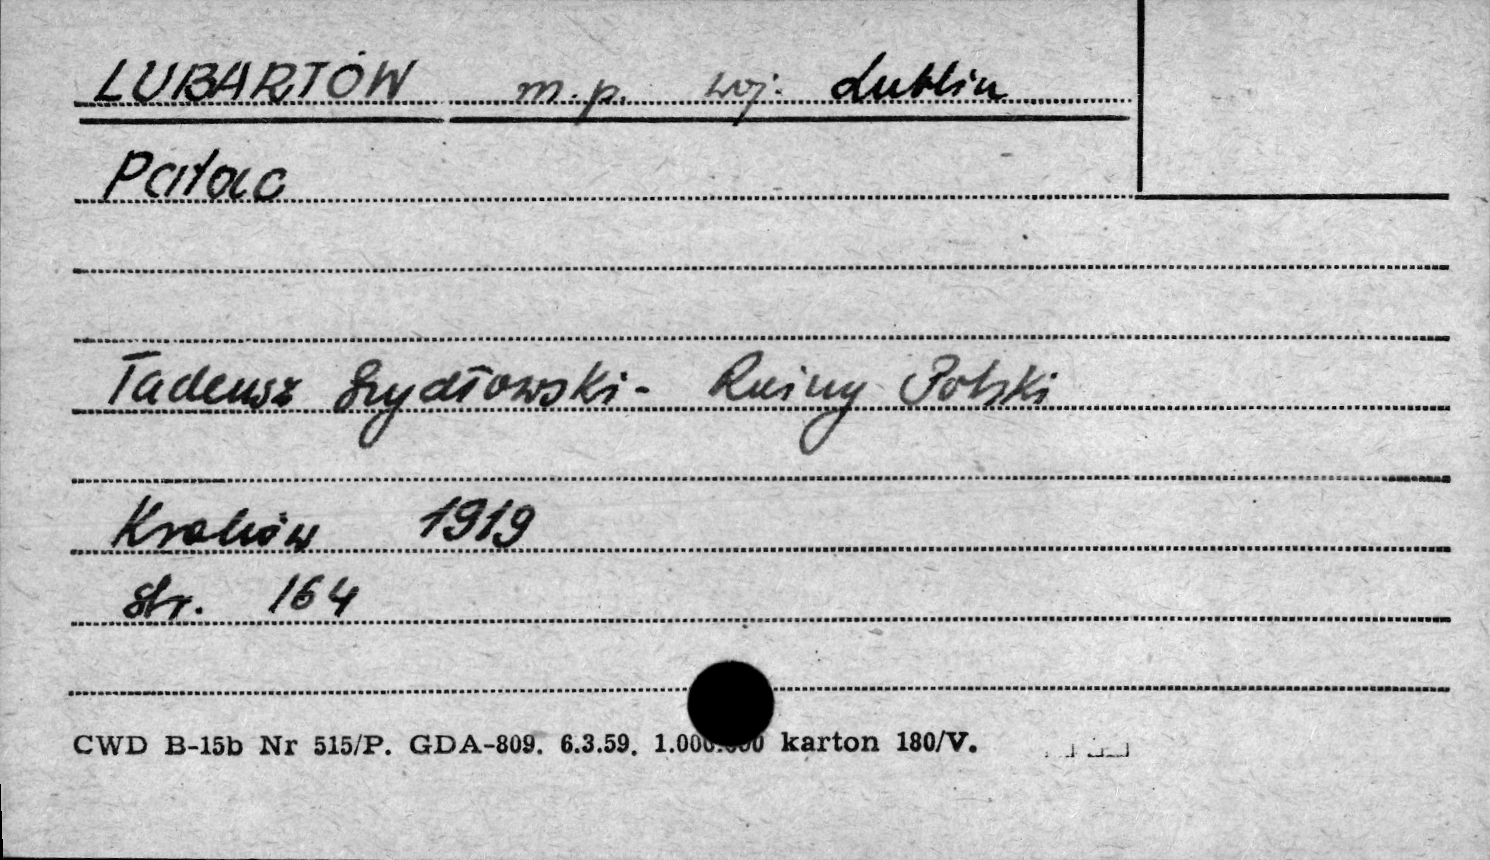 LUBARTÓW m.p. woj. Lublin
Pałac
Tadeusz Szydłowski - Ruiny Polski
Kraków 1919
str. 164
CWD B-15b Nr 515/P. GDA-809. 6.3.59. 1.000.000 karton 180/V.